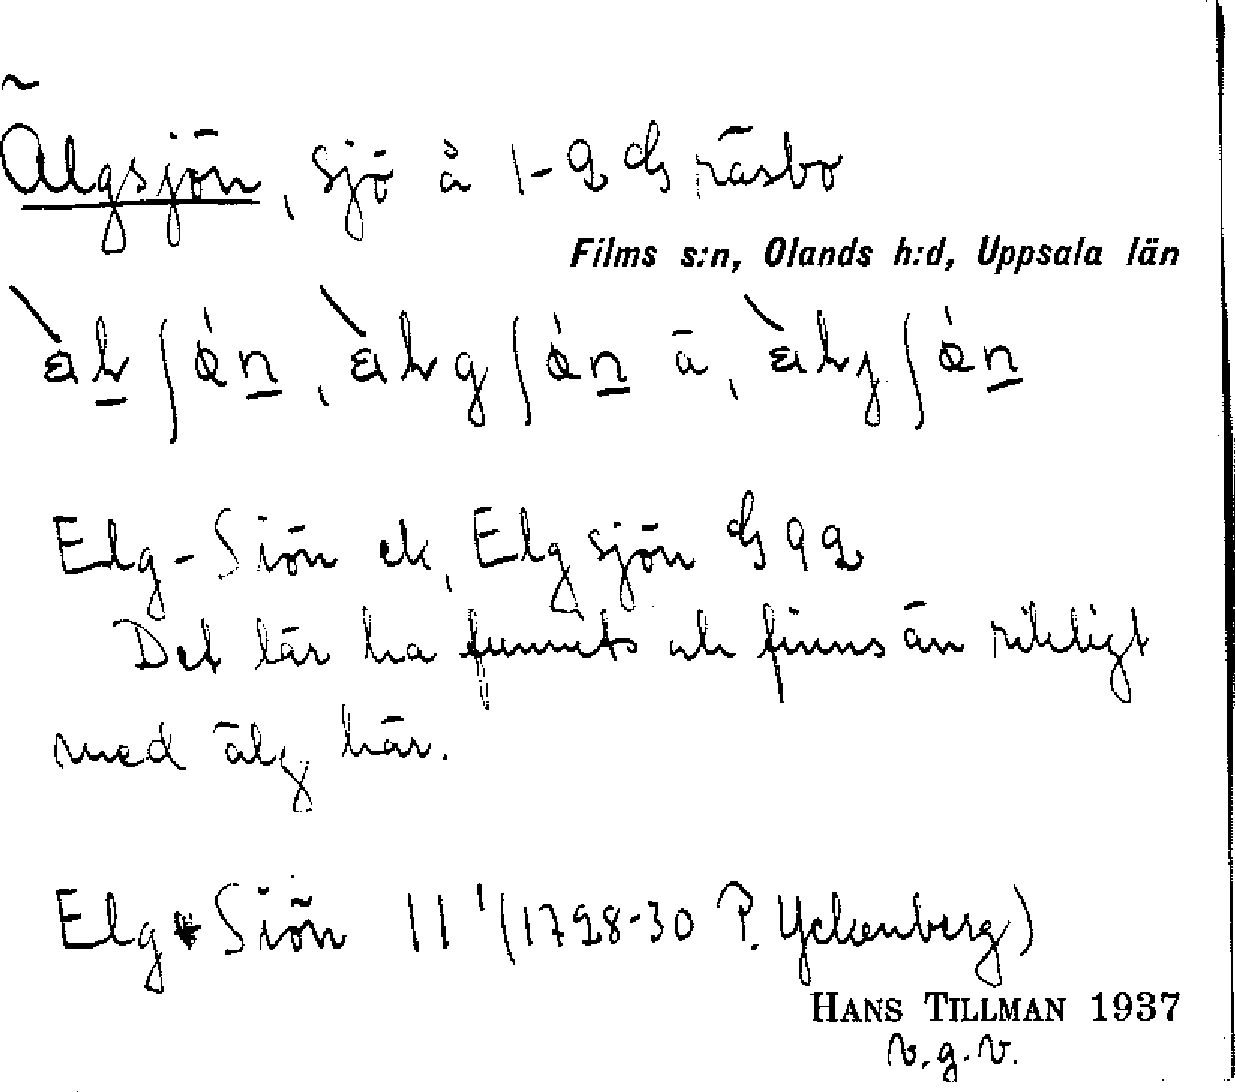 ~
Älgsjön, sjö å 1-2 ds räsbo
Films s:n, Olands h:d, Uppsala län
Elg-Siön ek, Elgsjön ds 92
Det lär ha funnits ock finns än rikligt
med älg här.
Elg Siön 11 1 (1728-30 P. Yckenberg)
HANS TILLMAN 1937
v.g.v.